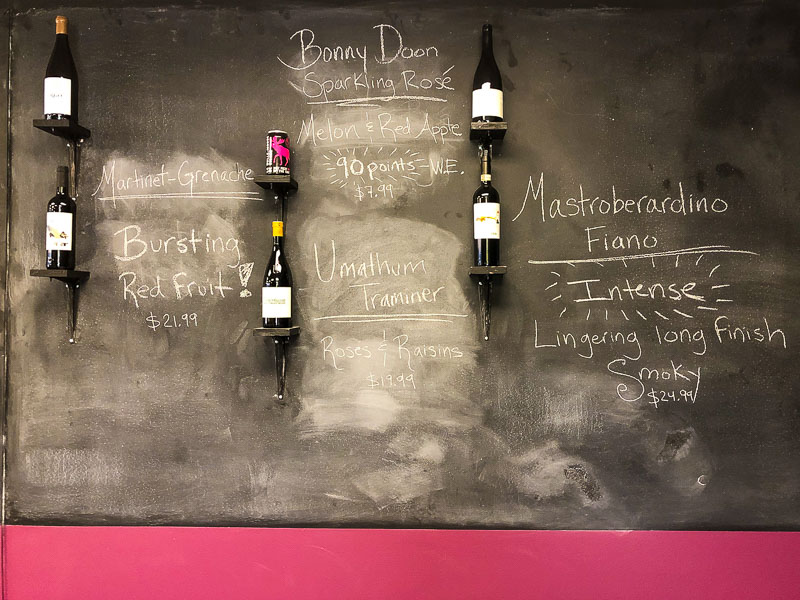 Martinet-Grenache
Bursting
Red Fruit!
$21.99
Bonny Doon
Sparkling Rosé
Melon & Red Apple
90 points - W.E.
$7.99
Umathum
Traminer
Roses & Raisins
$19.99
Mastroberardino
Fiano
Intense
Lingering long finish
Smoky
$24.99